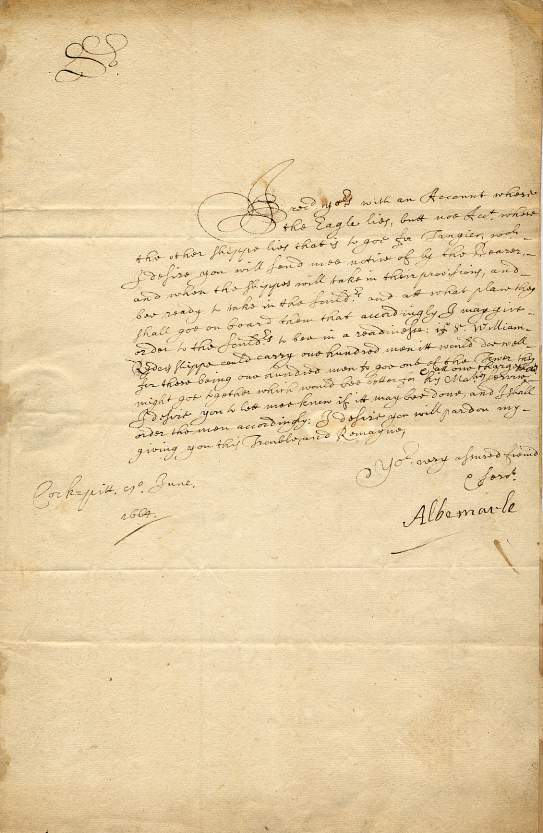 Sr.
I recd. yors with an Account where
the Eagle lies, butt noe Acct. where
the other Shippe lies that is to goe for Tangier, wch
I desire you will send mee notice of by the Bearer,
and when the Shippes will take in their provisions, and
bee ready to take in the Sould.rs and att what place they
shall goe on board them that accordingly I may give
order to the Sould.rs to bee in a readinesse: if Sr. William
Ryders Shippe could carry one hundred men itt would doe well
for there being one hundred men to goe out of the Tower they
might goe together under one charge
which would bee better for his Maties. service
I desire you to lett mee know if itt may bee done, and I shall
order the men accordingly: I desire you will pardon my
giving you this Trouble, and Remayne,
Yor. very assured friend
& Servt.
Albemarle
Cockepitt. June.
1664.